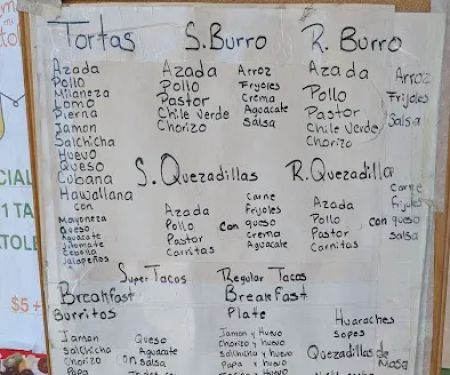 Tortas
Azada
Pollo
Milaneza
Lomo
Pierna
Jamon
Salchicha
Huevo
Queso
Cubana
Hawallana
con
Mayoneza
Queso
Aguacate
Jitomate
Cebolla
Jalapeños
S. Burro
Azada
Pollo
Pastor
Chile Verde
Chorizo
Arroz
Fryoles
Crema
Aguacate
Salsa
R. Burro
Azada
Pollo
Pastor
Chile Verde
Chorizo
Arroz
Frijoles
Salsa
S. Quezadillas
Azada
Pollo
Pastor
Carnitas
con
Carne
Frijoles
queso
Crema
Aguacate
R. Quezadilla
Azada
Pollo
Pastor
Carnitas
con
Carne
Frijoles
queso
Salsa
Super Tacos
Regular Tacos
Breakfast
Burritos
Jamon
Salchicha
Chorizo
Papa
con
Queso
Aguacate
Salsa
Breakfast
Plate
Jamon y Huevo
Chorizo y huevo
Salchicha y huevo
Papa y huevo
Huaraches
Sopes
Quezadillas de
Masa
CIAL
1 TA
ATOLE
$5 +